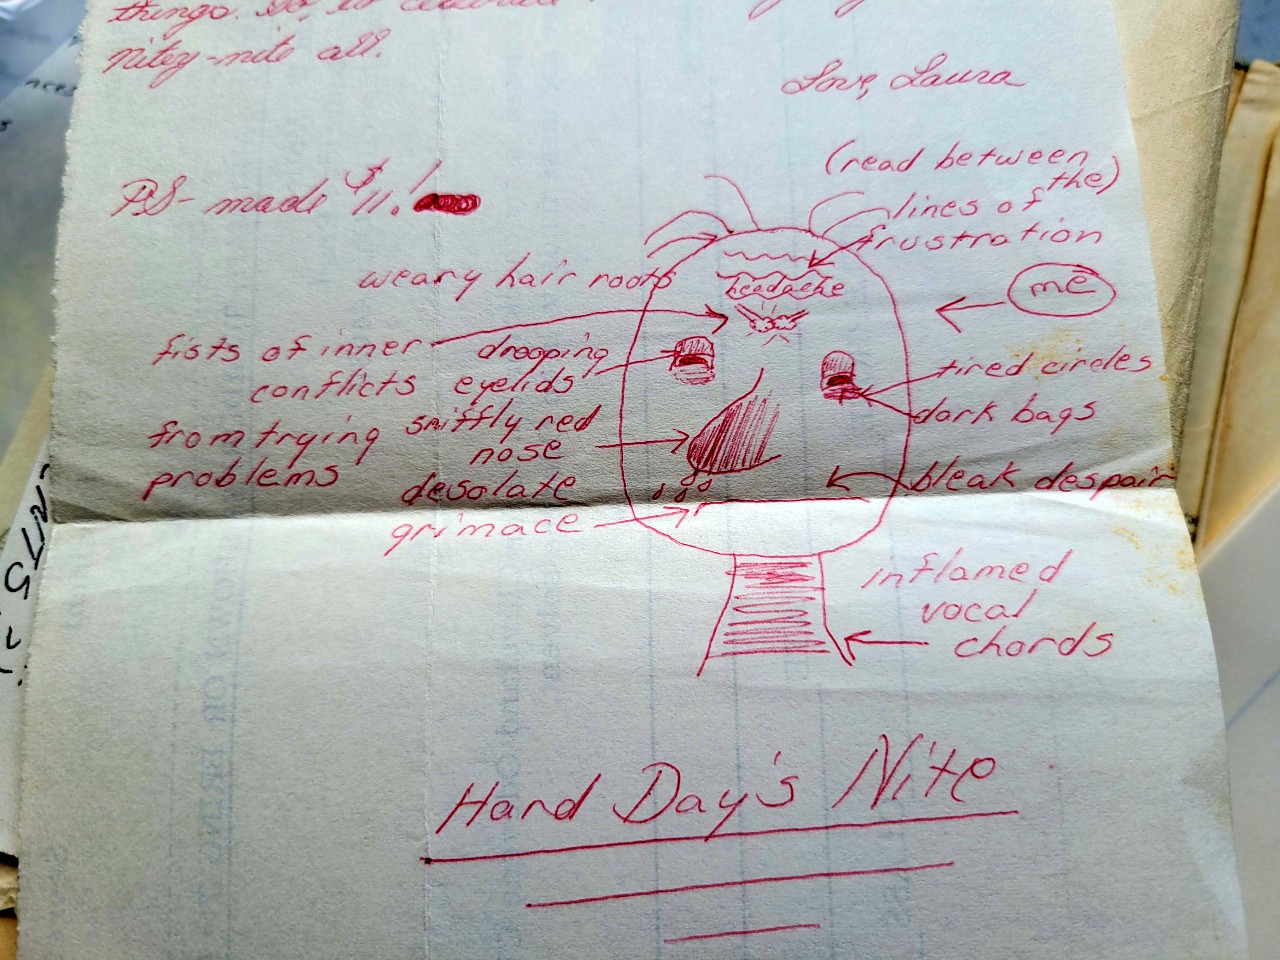 things. So, to
Nitey-nite all.
Love, Laura
PS- made $11.!
(read between
the)
lines of
frustration
weary hair roots
headache
me
fists of inner
conflicts
from trying
problems
drooping
eyelids
tired circles
dark bags
sniffly red
nose
bleak despair
desolate
grimace
inflamed
vocal
chords
Hard Day's Nite